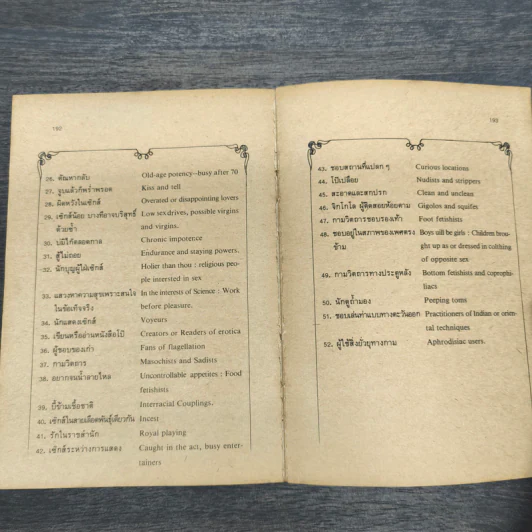 192
26. ตัณหากลับ Old-age potency–busy after 70
27. จูบแล้วก็พร่ำพรอด Kiss and tell
28. ผิดหวังในเซ็กส์ Overated or disappointing lovers
29. เซ็กส์น้อย บางทีอาจบริสุทธิ์ Low sex drives, possible virgins
ด้วยซ้ำ and virgins.
30. บ่มิไก้ตลอดกาล Chronic impotence
31. สู้ไม่ถอย Endurance and staying powers.
32. นักบุญผู้ใฝ่เซ็กส์ Holier than thou : religious peo-
ple interested in sex
33. แสวงหาความสุขเพราะสนใจ In the interests of Science : Work
ในข้อเท็จจริง before pleasure.
34. นักแสดงเซ็กส์ Voyeurs
35. เขียนหรืออ่านหนังสือโป๊ Creators or Readers of erotica
36. ผู้ชอบของเก่า Fans of flagellation
37. กามวิตถาร Masochists and Sadists
38. อยากจนน้ำลายไหล Uncontrollable appetites : Food
fetishists
39. ปี้ข้ามเชื้อชาติ Interracial Couplings.
40. เซ็กส์ในสายเลือดพันธุ์เดียวกัน Incest
41. รักในราชสำนัก Royal playing
42. เซ็กส์ระหว่างการแสดง Caught in the act, busy enter-
tainers
193
43. ชอบสถานที่แปลก ๆ Curious locations
44. โป๊เปลือย Nudists and strippers
45. สะอาดและสกปรก Clean and unclean
46. จิกโกโล ผู้ติดสอยห้อยตาม Gigolos and
47. กามวิตถารชอบรองเท้า Foot fetishists
48. ชอบอยู่ในสภาพของเพศตรง Boys will be girls : Children brou-
ข้าม ght up as or dressed in colthing
of opposite sex
49. กามวิตถารทางประตูหลัง Bottom fetishists and coprophi-
liacs
50. นักดูถ้ำมอง Peeping toms
51. ชอบเล่นท่าแบบทางตะวันออก Practitioners of Indian or orien-
tal techniques
52. ผู้ใช้สิ่งยั่วยุทางกาม Aphrodisiac users.